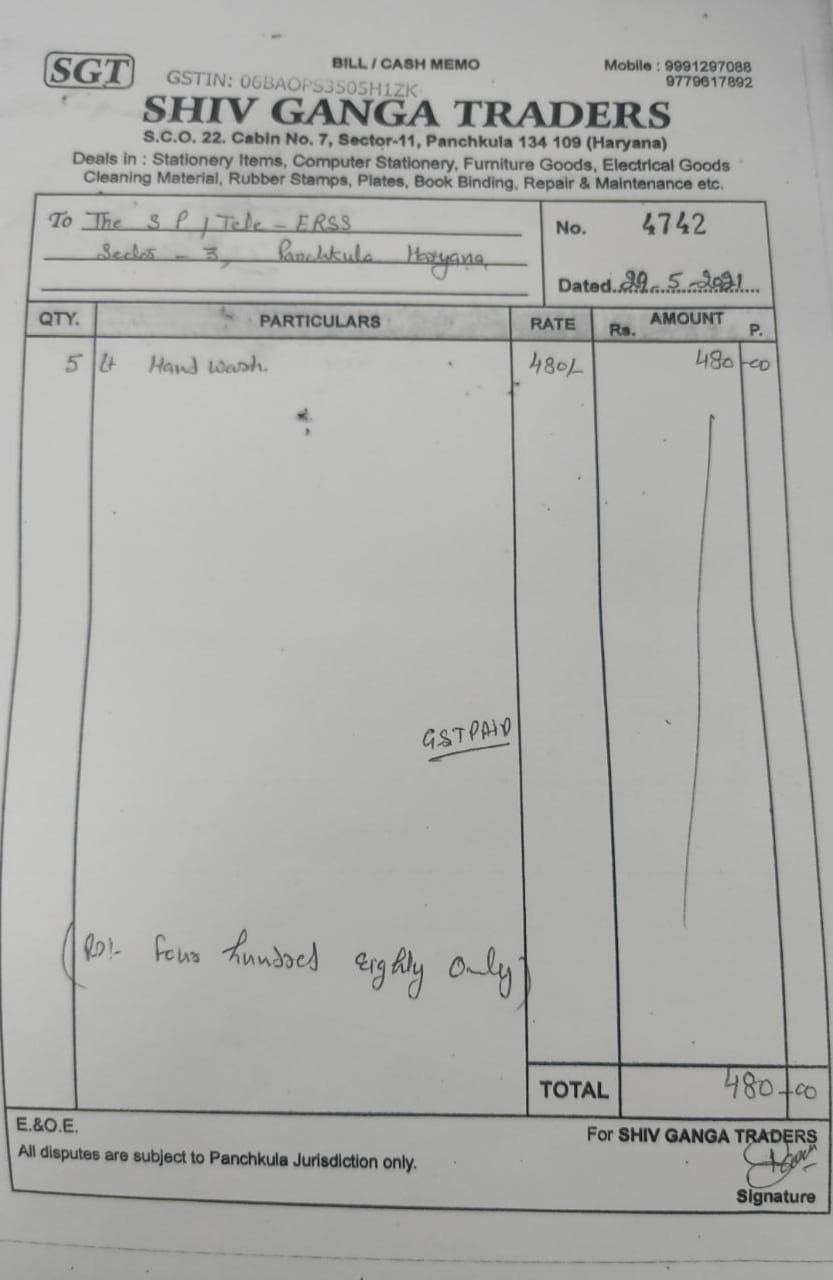 SGT
BILL / CASH MEMO
Mobile : 9991297088
9779617892
GSTIN: 06BAOPS3505H1ZK
SHIV GANGA TRADERS
S.C.O. 22. Cabin No. 7, Sector-11, Panchkula 134 109 (Haryana)
Deals in : Stationery Items, Computer Stationery, Furniture Goods, Electrical Goods
Cleaning Material, Rubber Stamps, Plates, Book Binding, Repair & Maintenance etc.
To The S P / Tele - ERSS
Sector - 3, Panchkula Haryana,
No. 4742
Dated 29-5-2021
QTY. PARTICULARS RATE AMOUNT
Rs. P.
5 Lt Hand wash. 480/- 480-00
GST PAID
(Rs!- four hundred eighty only)
TOTAL 480-00
E.&O.E.
For SHIV GANGA TRADERS
All disputes are subject to Panchkula Jurisdiction only.
Signature